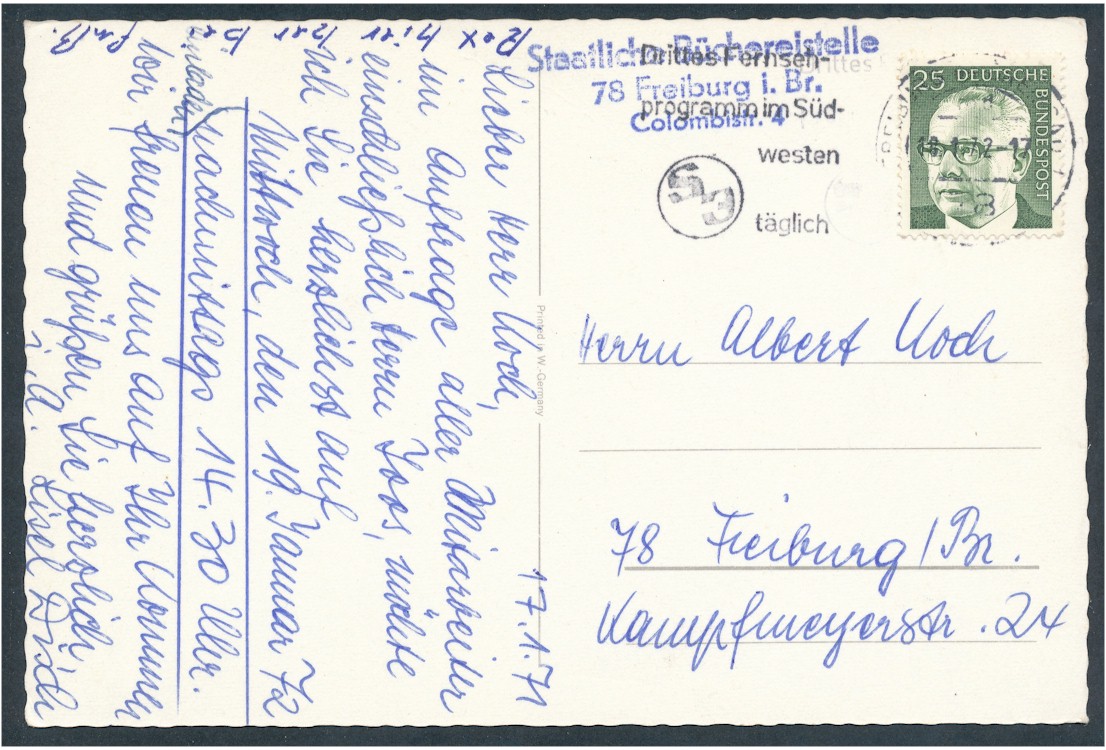 17.1.71
Lieber Herr Koch,
im Auftrage aller Mitarbeiter
einschließlich Herrn Joos, möchte
ich Sie herzlichst auf
Mittwoch, den 19. Januar 72
nachmittags 14.30 Uhr.
einladen
Wir freuen uns auf Ihr Kommen
und grüßen Sie herzlich
i. A. Lisel
Staatliche Büchereistelle
78 Freiburg i. Br.
Colombistr. 4
Drittes Fernseh-
programm im Süd-
westen
S3
täglich
Drittes
25 DEUTSCHE
BUNDESPOST
72-17
Printed in W.-Germany
Herrn Albert Koch
78 Freiburg/Br.
Kampfmeyerstr. 24